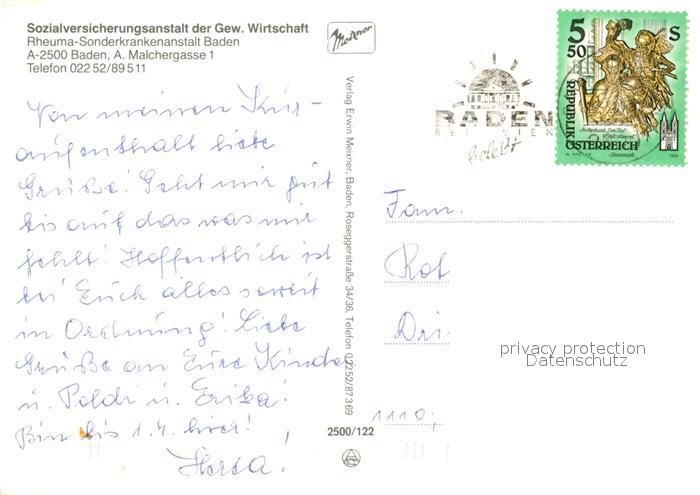 Sozialversicherungsanstalt der Gew. Wirtschaft
Rheuma-Sonderkrankenanstalt Baden
A-2500 Baden, A. Malchergasse 1
Telefon 022 52/89 5 11
Meixner
Von meinen Kur-
aufenthalt liebe
Grüße! Geht mir gut
bis auf das was mir
fehlt! Hoffentlich ist
bei Euch alles soweit
in Ordnung! Liebe
Grüße an Eure Kinder
u. Poldi u. Erika!
Bin bis 1.4. hier!
Herta!
Verlag Erwin Meixner, Baden, Roseggerstraße 34/36, Telefon 02252/87369
2500/122
BADEN
BEI WIEN
belebt
5 50 S
REPUBLIK
ÖSTERREICH
1993
Fam.
Rot
Dri.
1110,
privacy protection
Datenschutz